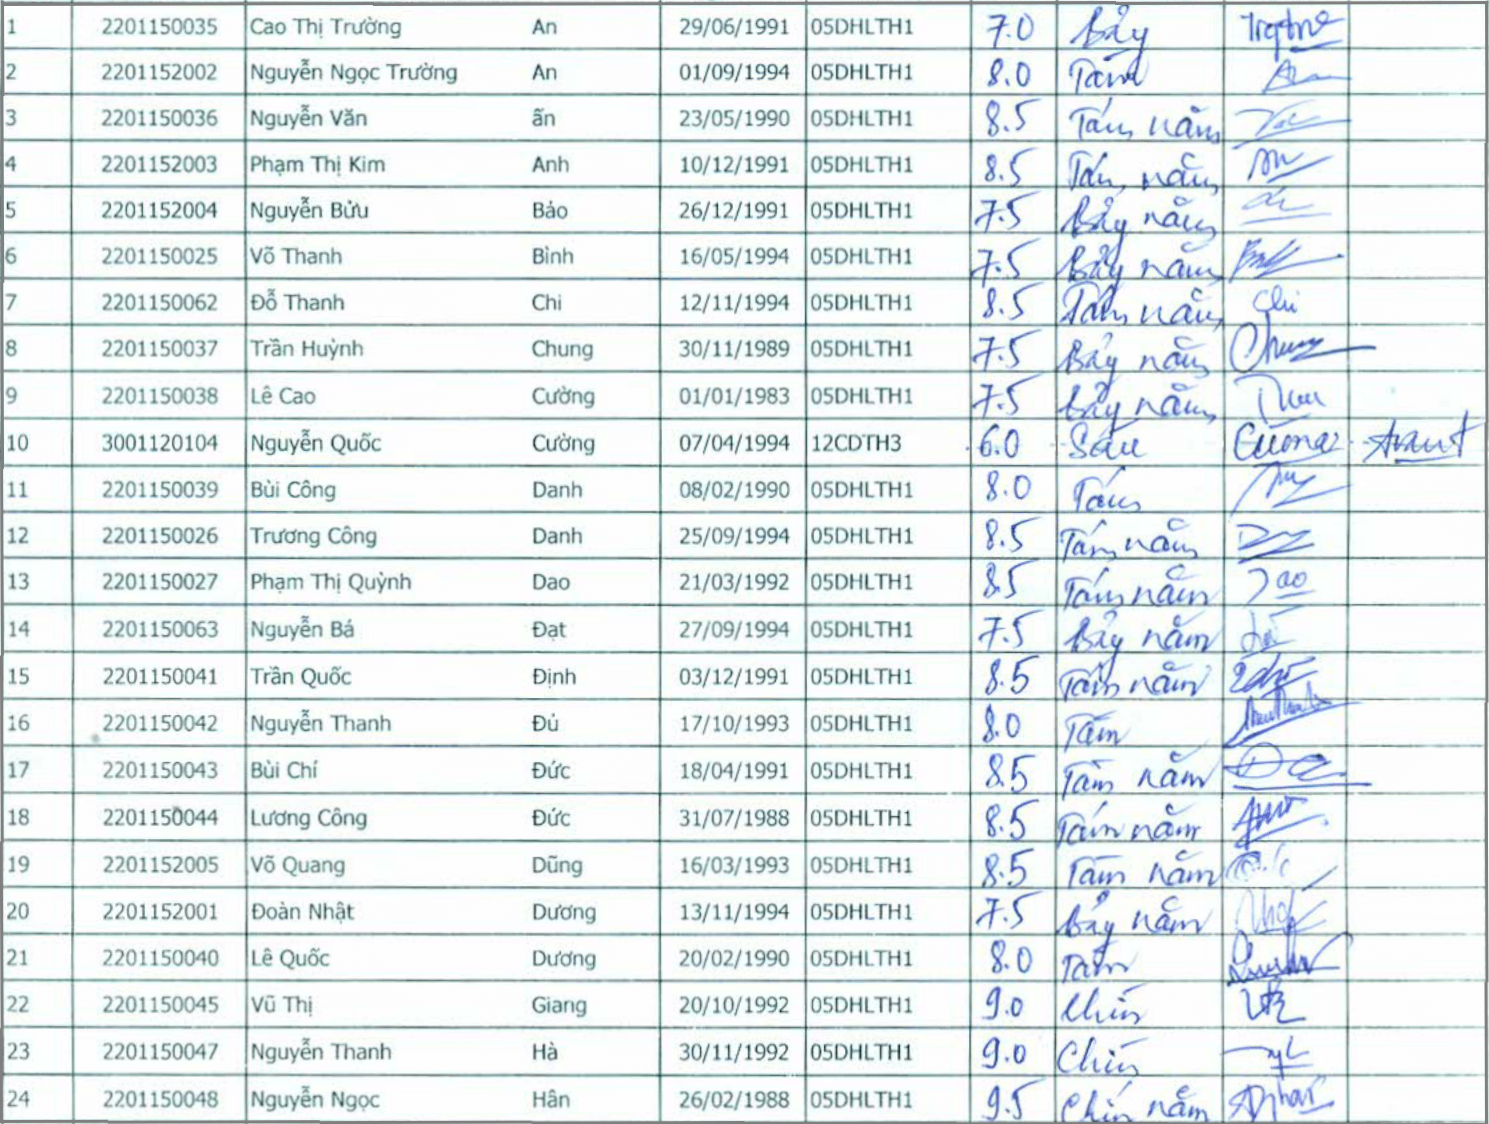 1 2201150035 Cao Thị Trường An 29/06/1991 05DHLTH1 7.0 Bảy
2 2201152002 Nguyễn Ngọc Trường An 01/09/1994 05DHLTH1 8.0 Tám
3 2201150036 Nguyễn Văn ấn 23/05/1990 05DHLTH1 8.5 Tám năm
4 2201152003 Phạm Thị Kim Anh 10/12/1991 05DHLTH1 8.5 Tám năm
5 2201152004 Nguyễn Bửu Bảo 26/12/1991 05DHLTH1 7.5 Bảy năm
6 2201150025 Võ Thanh Bình 16/05/1994 05DHLTH1 7.5 Bảy năm
7 2201150062 Đỗ Thanh Chi 12/11/1994 05DHLTH1 8.5 Tám năm Chi
8 2201150037 Trần Huỳnh Chung 30/11/1989 05DHLTH1 7.5 Bảy năm Chung
9 2201150038 Lê Cao Cường 01/01/1983 05DHLTH1 7.5 Bảy năm
10 3001120104 Nguyễn Quốc Cường 07/04/1994 12CDTH3 6.0 Sáu Cường
11 2201150039 Bùi Công Danh 08/02/1990 05DHLTH1 8.0 Tám
12 2201150026 Trương Công Danh 25/09/1994 05DHLTH1 8.5 Tám năm
13 2201150027 Phạm Thị Quỳnh Dao 21/03/1992 05DHLTH1 8.5 Tám năm Dao
14 2201150063 Nguyễn Bá Đạt 27/09/1994 05DHLTH1 7.5 Bảy năm
15 2201150041 Trần Quốc Định 03/12/1991 05DHLTH1 8.5 Tám năm
16 2201150042 Nguyễn Thanh Đủ 17/10/1993 05DHLTH1 8.0 Tám
17 2201150043 Bùi Chí Đức 18/04/1991 05DHLTH1 8.5 Tám năm
18 2201150044 Lương Công Đức 31/07/1988 05DHLTH1 8.5 Tám năm
19 2201152005 Võ Quang Dũng 16/03/1993 05DHLTH1 8.5 Tám năm
20 2201152001 Đoàn Nhật Dương 13/11/1994 05DHLTH1 7.5 Bảy năm
21 2201150040 Lê Quốc Dương 20/02/1990 05DHLTH1 8.0 Tám
22 2201150045 Vũ Thị Giang 20/10/1992 05DHLTH1 9.0 Chín
23 2201150047 Nguyễn Thanh Hà 30/11/1992 05DHLTH1 9.0 Chín
24 2201150048 Nguyễn Ngọc Hân 26/02/1988 05DHLTH1 9.5 Chín năm